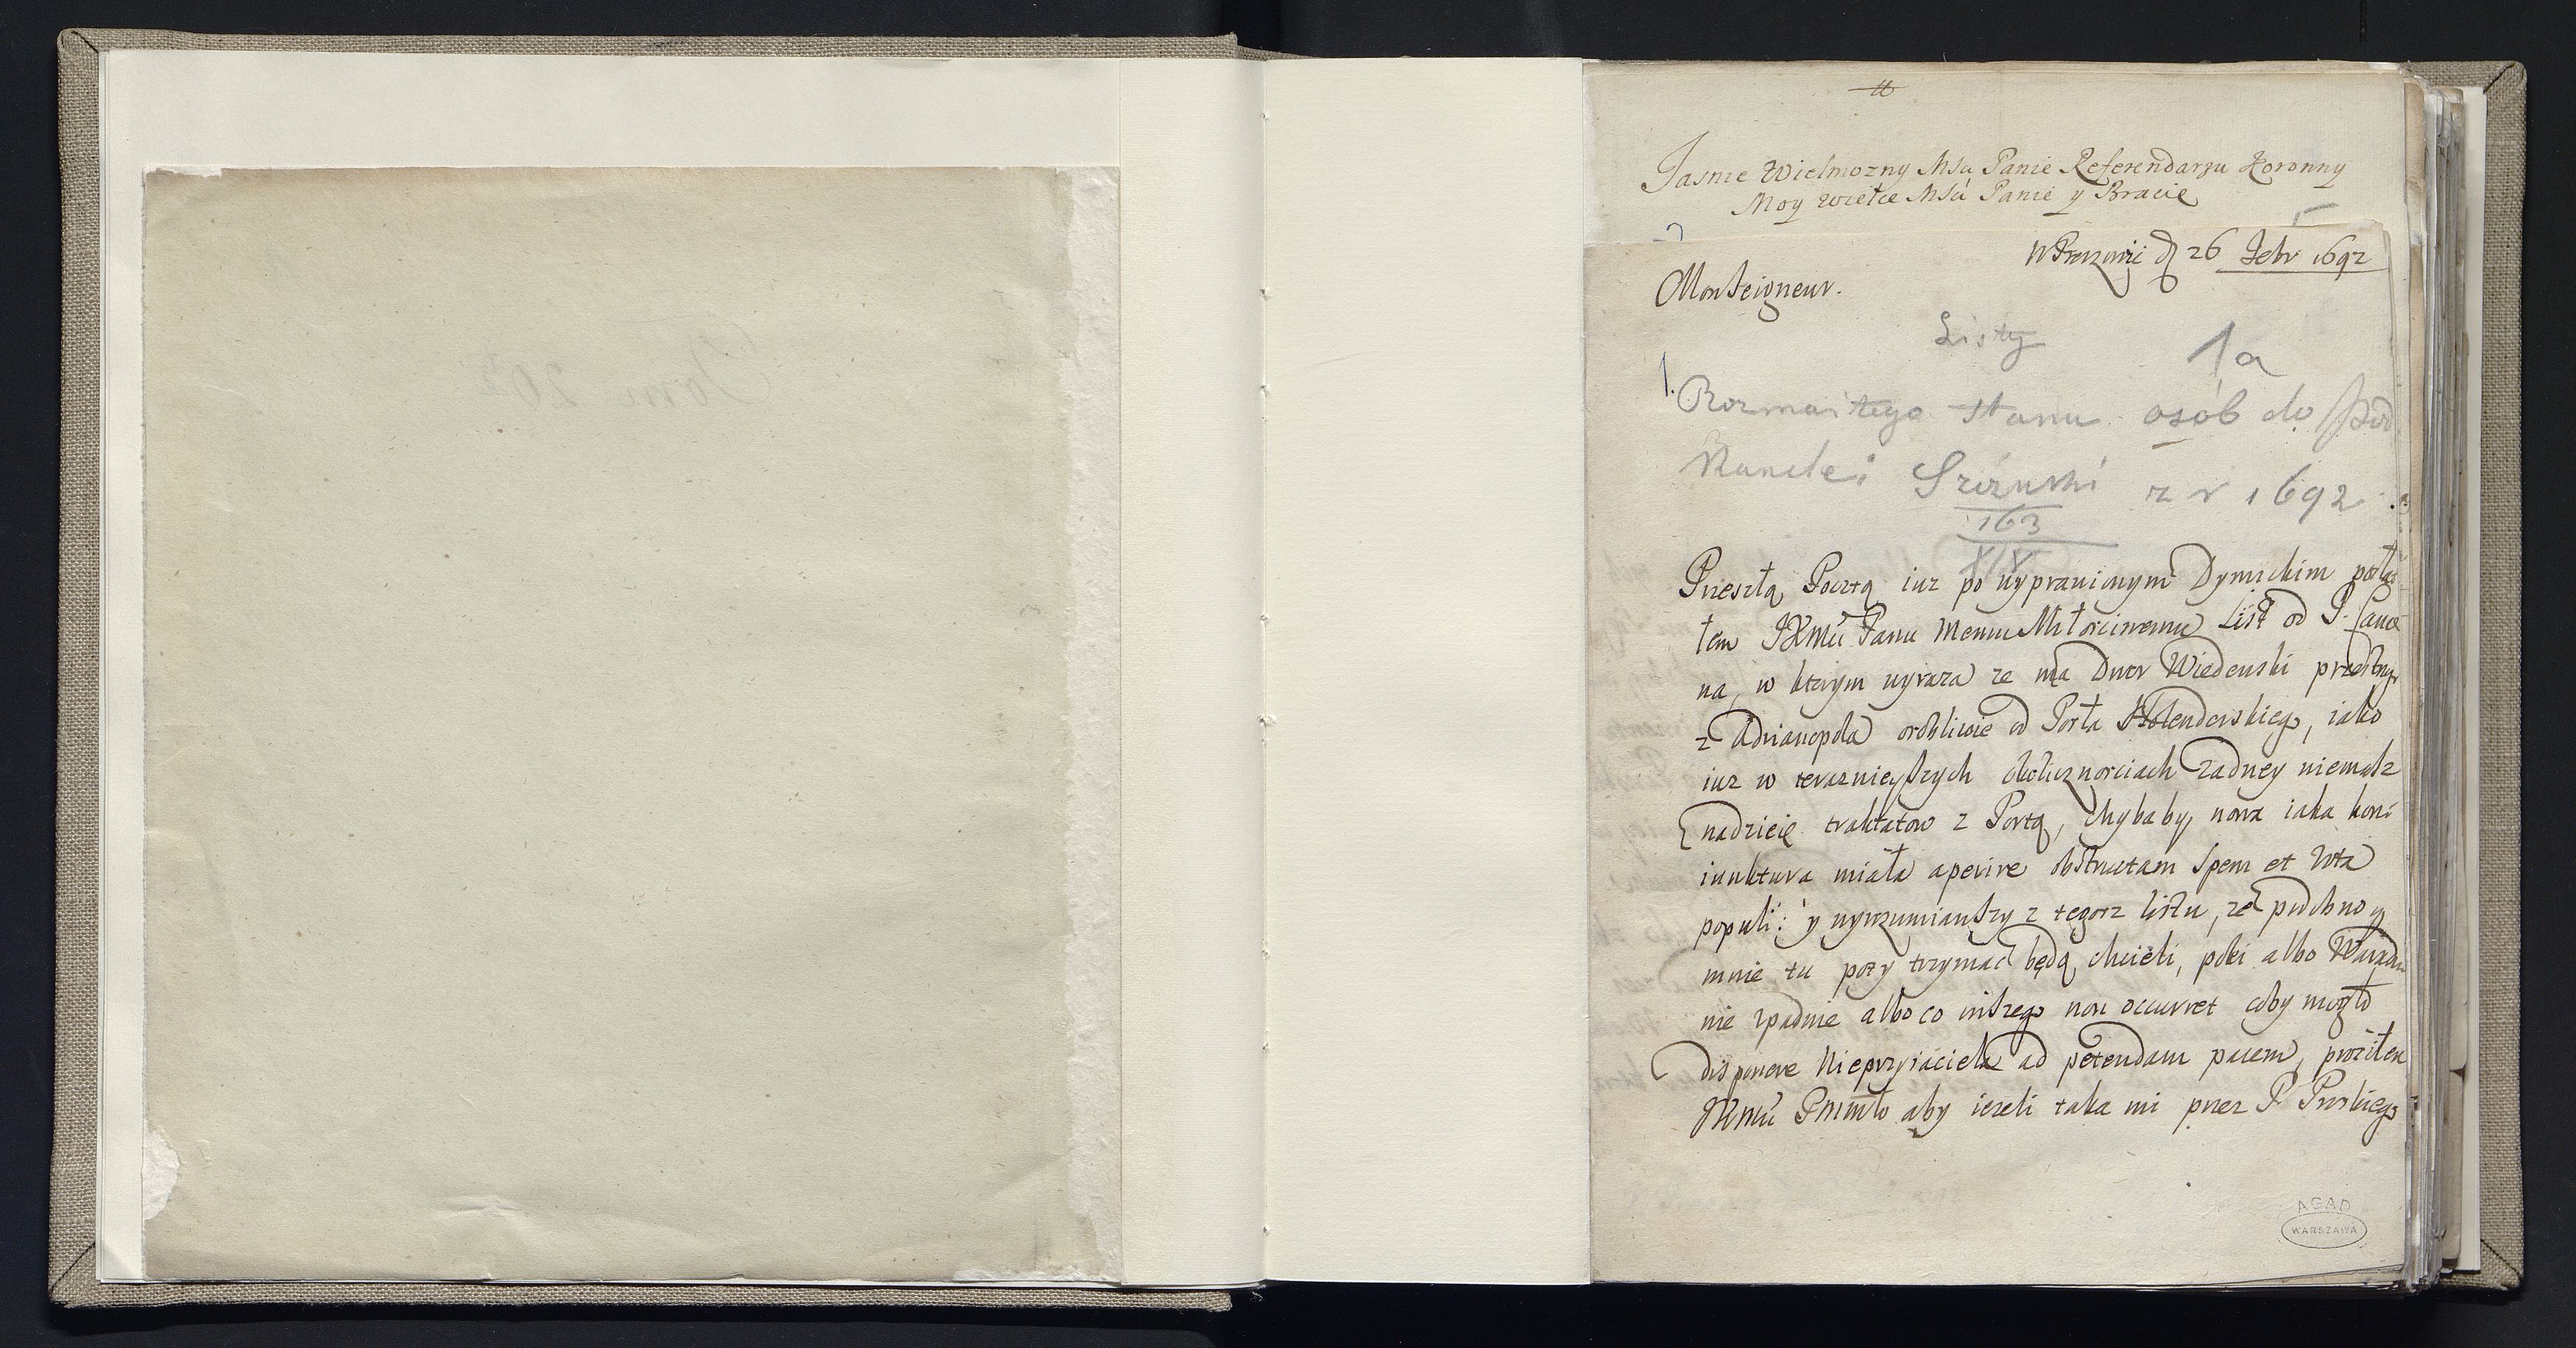 Jasnie Wielmozny Msci Panie Referendarzu Koronny
Moy wielce Msci Panie y Bracie
26 Febr 1692
Monseigneur.
Listy
1a
1.
Rozmaitego stanu osób do Pod
Kancle: Szczuski z r 1692
163
Przeszłą Pocztą iuz po wyprawionym Dymickim posła
łem Panu memu Miłosciwemu List od P.
na, w ktorym wyraza ze ma Dwor Wiedenski przestrogi
z Adrianopola osobliwie od Posła Holenderskiego, iako
iuz w teraznieyszych okolicznosciach zadney niemasz
nadzieię traktatow z Portą, chybaby nowa iaka kon
iunktura miała aperire obstructam spem et vota
populi: y wyrozumiawszy z tegosz listu, ze podobno y
mnie tu poty trzymac będą chcieli, poki albo Waradin
nie spadnie albo co inszego non occurret coby mogło
disponere Nieprzyiaciela ad petendam pacem, prosiłem
aby iezeli taka mi przez P.
AGAD
WARSZAWA